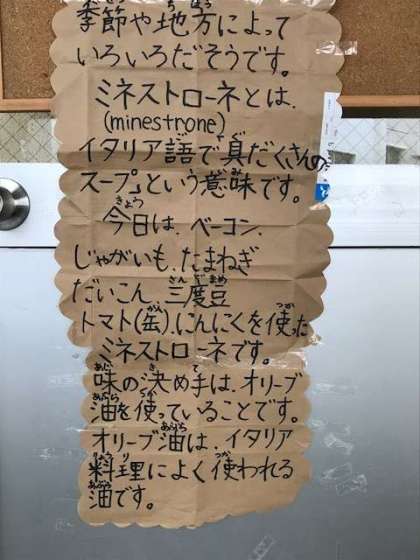 季節や地方によって
いろいろだそうです。
ミネストローネとは、
(minestrone)
イタリア語で具だくさんの
スープ」という意味です。
今日は、ベーコン、
じゃがいも、たまねぎ
だいこん、三度豆
トマト(缶)、にんにくを使った
ミネストローネです。
味の決め手は、オリーブ
油を使っていることです。
オリーブ油は、イタリア
料理によく使われる
油です。